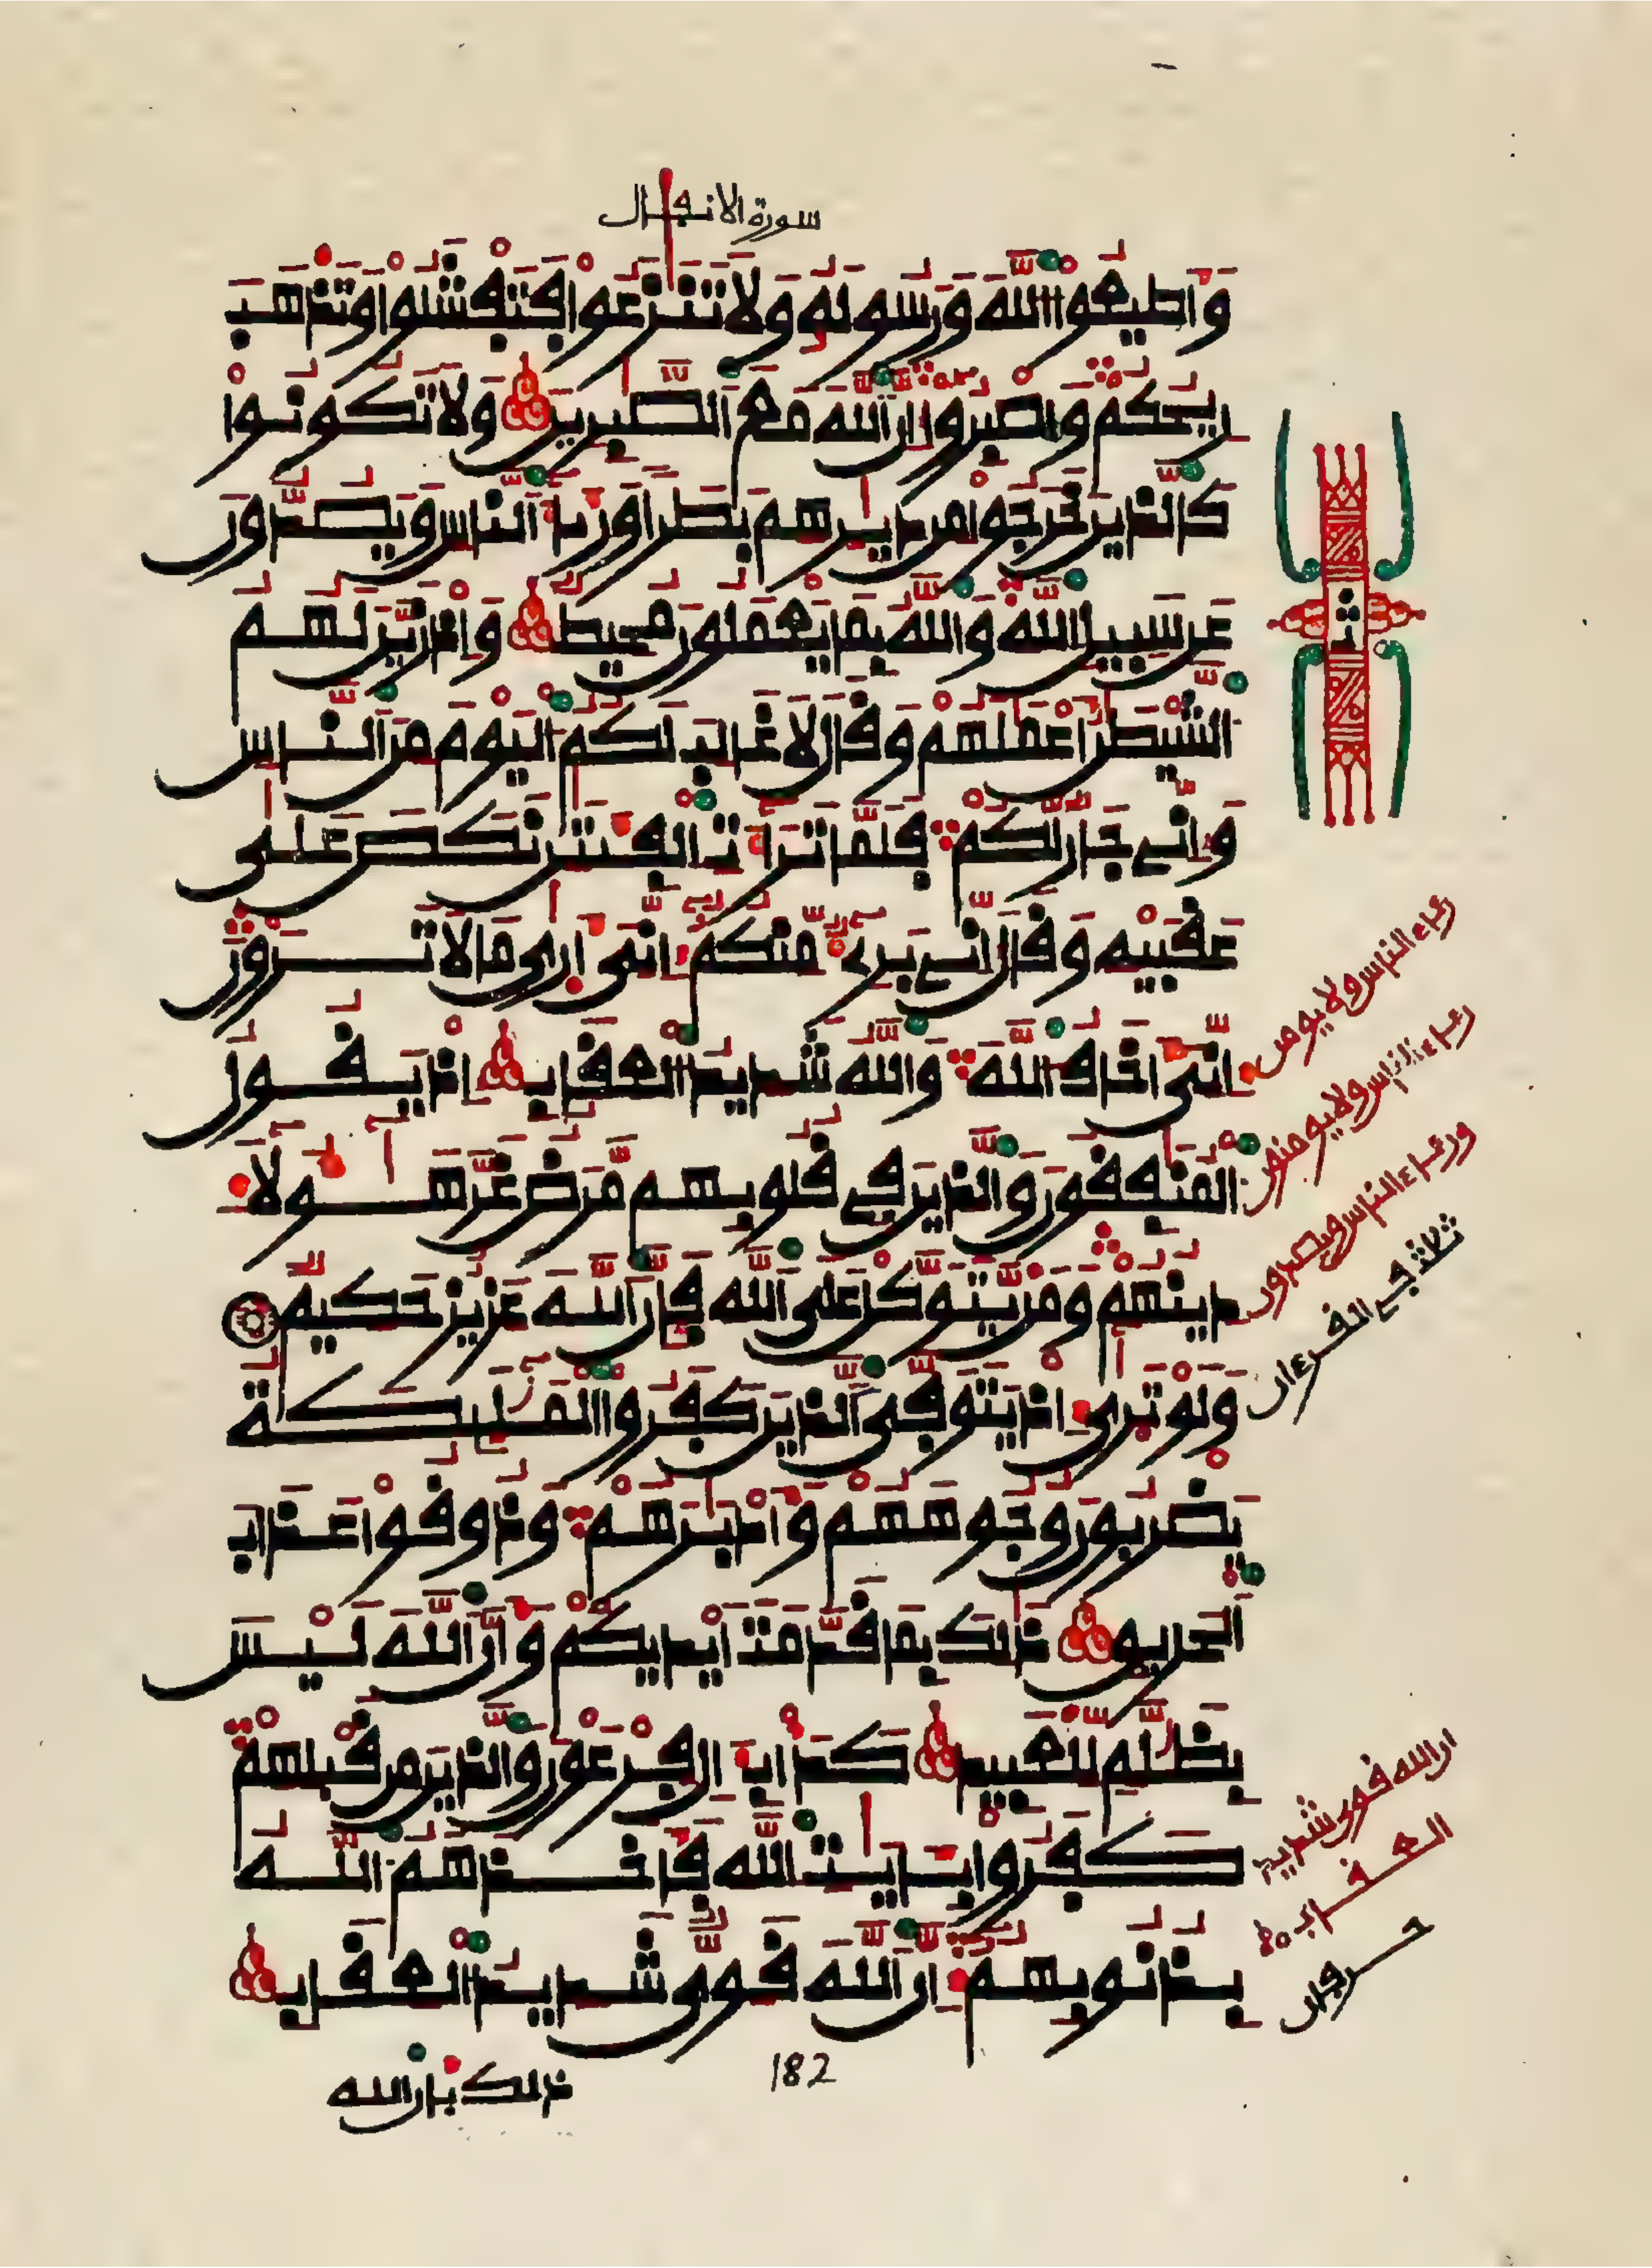 سورة الانفال
وَأَطِيعُوا اللَّهَ وَرَسُولَهُ وَلَا تَنَٰزَعُوا فَتَفْشَلُوا وَتَذْهَبَ
رِيحُكُمْ وَاصْبِرُوا إِنَّ اللَّهَ مَعَ الصَّٰبِرِينَ وَلَا تَكُونُوا
كَالَّذِينَ خَرَجُوا مِن دِيَٰرِهِم بَطَرًا وَرِئَآءَ النَّاسِ وَيَصُدُّونَ
عَن سَبِيلِ اللَّهِ وَاللَّهُ بِمَا يَعْمَلُونَ مُحِيطٌ وَإِذْ زَيَّنَ لَهُمُ
الشَّيْطَٰنُ أَعْمَٰلَهُمْ وَقَالَ لَا غَالِبَ لَكُمُ الْيَوْمَ مِنَ النَّاسِ
وَإِنِّي جَارٌ لَّكُمْ فَلَمَّا تَرَآءَتِ الْفِئَتَٰنِ نَكَصَ عَلَىٰ
عَقِبَيْهِ وَقَالَ إِنِّي بَرِيٓءٌ مِّنكُمْ إِنِّيَ أَرَىٰ مَا لَا تَرَوْنَ
إِنِّيَ أَخَافُ اللَّهَ وَاللَّهُ شَدِيدُ الْعِقَابِ إِذْ يَقُولُ
الْمُنَٰفِقُونَ وَالَّذِينَ فِي قُلُوبِهِم مَّرَضٌ غَرَّ هَٰٓؤُلَآءِ
دِينُهُمْ وَمَن يَتَوَكَّلْ عَلَى اللَّهِ فَإِنَّ اللَّهَ عَزِيزٌ حَكِيمٌ
وَلَوْ تَرَىٰ إِذْ يَتَوَفَّى الَّذِينَ كَفَرُوا الْمَلَٰٓئِكَةُ
يَضْرِبُونَ وُجُوهَهُمْ وَأَدْبَٰرَهُمْ وَذُوقُوا عَذَابَ
الْحَرِيقِ ذَٰلِكَ بِمَا قَدَّمَتْ أَيْدِيكُمْ وَأَنَّ اللَّهَ لَيْسَ
بِظَلَّٰمٍ لِّلْعَبِيدِ كَدَأْبِ ءَالِ فِرْعَوْنَ وَالَّذِينَ مِن قَبْلِهِمْ
كَفَرُوا بِـَٔايَٰتِ اللَّهِ فَأَخَذَهُمُ اللَّهُ
بِذُنُوبِهِمْ إِنَّ اللَّهَ قَوِيٌّ شَدِيدُ الْعِقَابِ
ذلك بأن الله
182
رئاء الناس ولا يومن
رئاء الناس ولا يومنون
ورئاء الناس ويصدون
ثلاثة في القرءان
ان الله قوي شديد
العقاب
حرفان